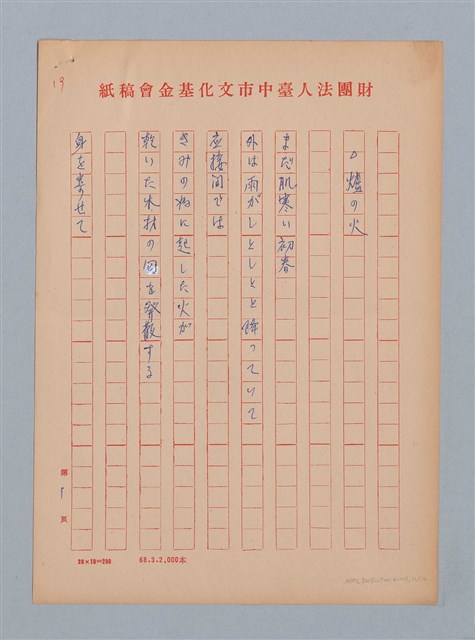 19
財團法人臺中市文化基金會稿紙
△爐の火
まだ肌寒い初春
外は雨がしとしとと降っていて
応接間では
きみの為に起した火が
乾いた木材の香を発散する
身を寄せて
第 1 頁
20×10=200
68.3.2,000本